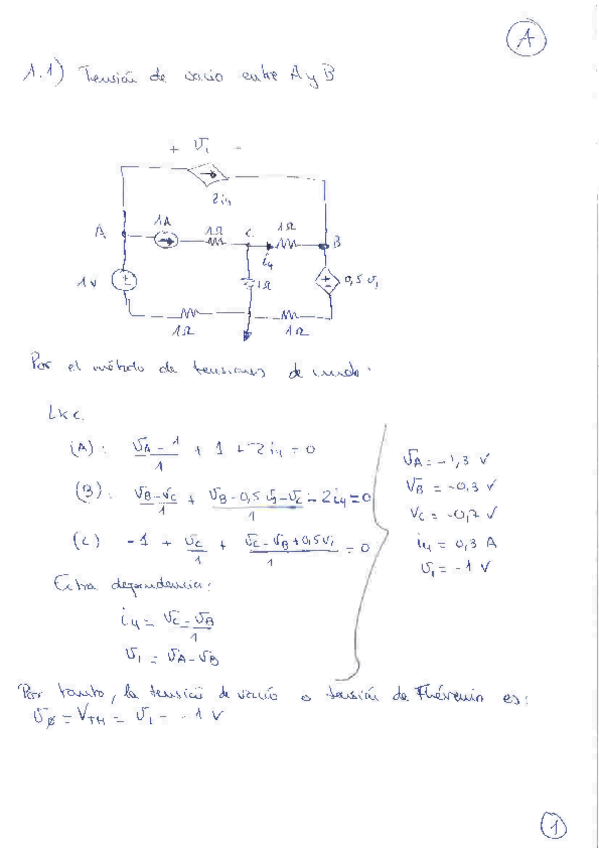 A
1.1) Tensión de vacío entre A y B
+ v₁ -
2i₄
A 1A 1Ω C 1Ω B
i₄
1v 1Ω 0,5 v₁
1Ω 1Ω
Por el método de tensiones de nudo:
LKC.
(A): (vA - 1)/1 + 1 + 2i₄ = 0
(B): (vB - vC)/1 + (vB - 0,5 v₁ - vC)/1 - 2i₄ = 0
(C) -1 + vC/1 + (vC - vB + 0,5v₁)/1 = 0
vA = -1,3 v
vB = -0,3 v
vC = -0,2 v
i₄ = 0,3 A
v₁ = -1 v
Extra dependencia:
i₄ = (vC - vB)/1
v₁ = vA - vB
Por tanto, la tensión de vacío o tensión de Thévenin es:
vø = VTH = v₁ = -1 v
1